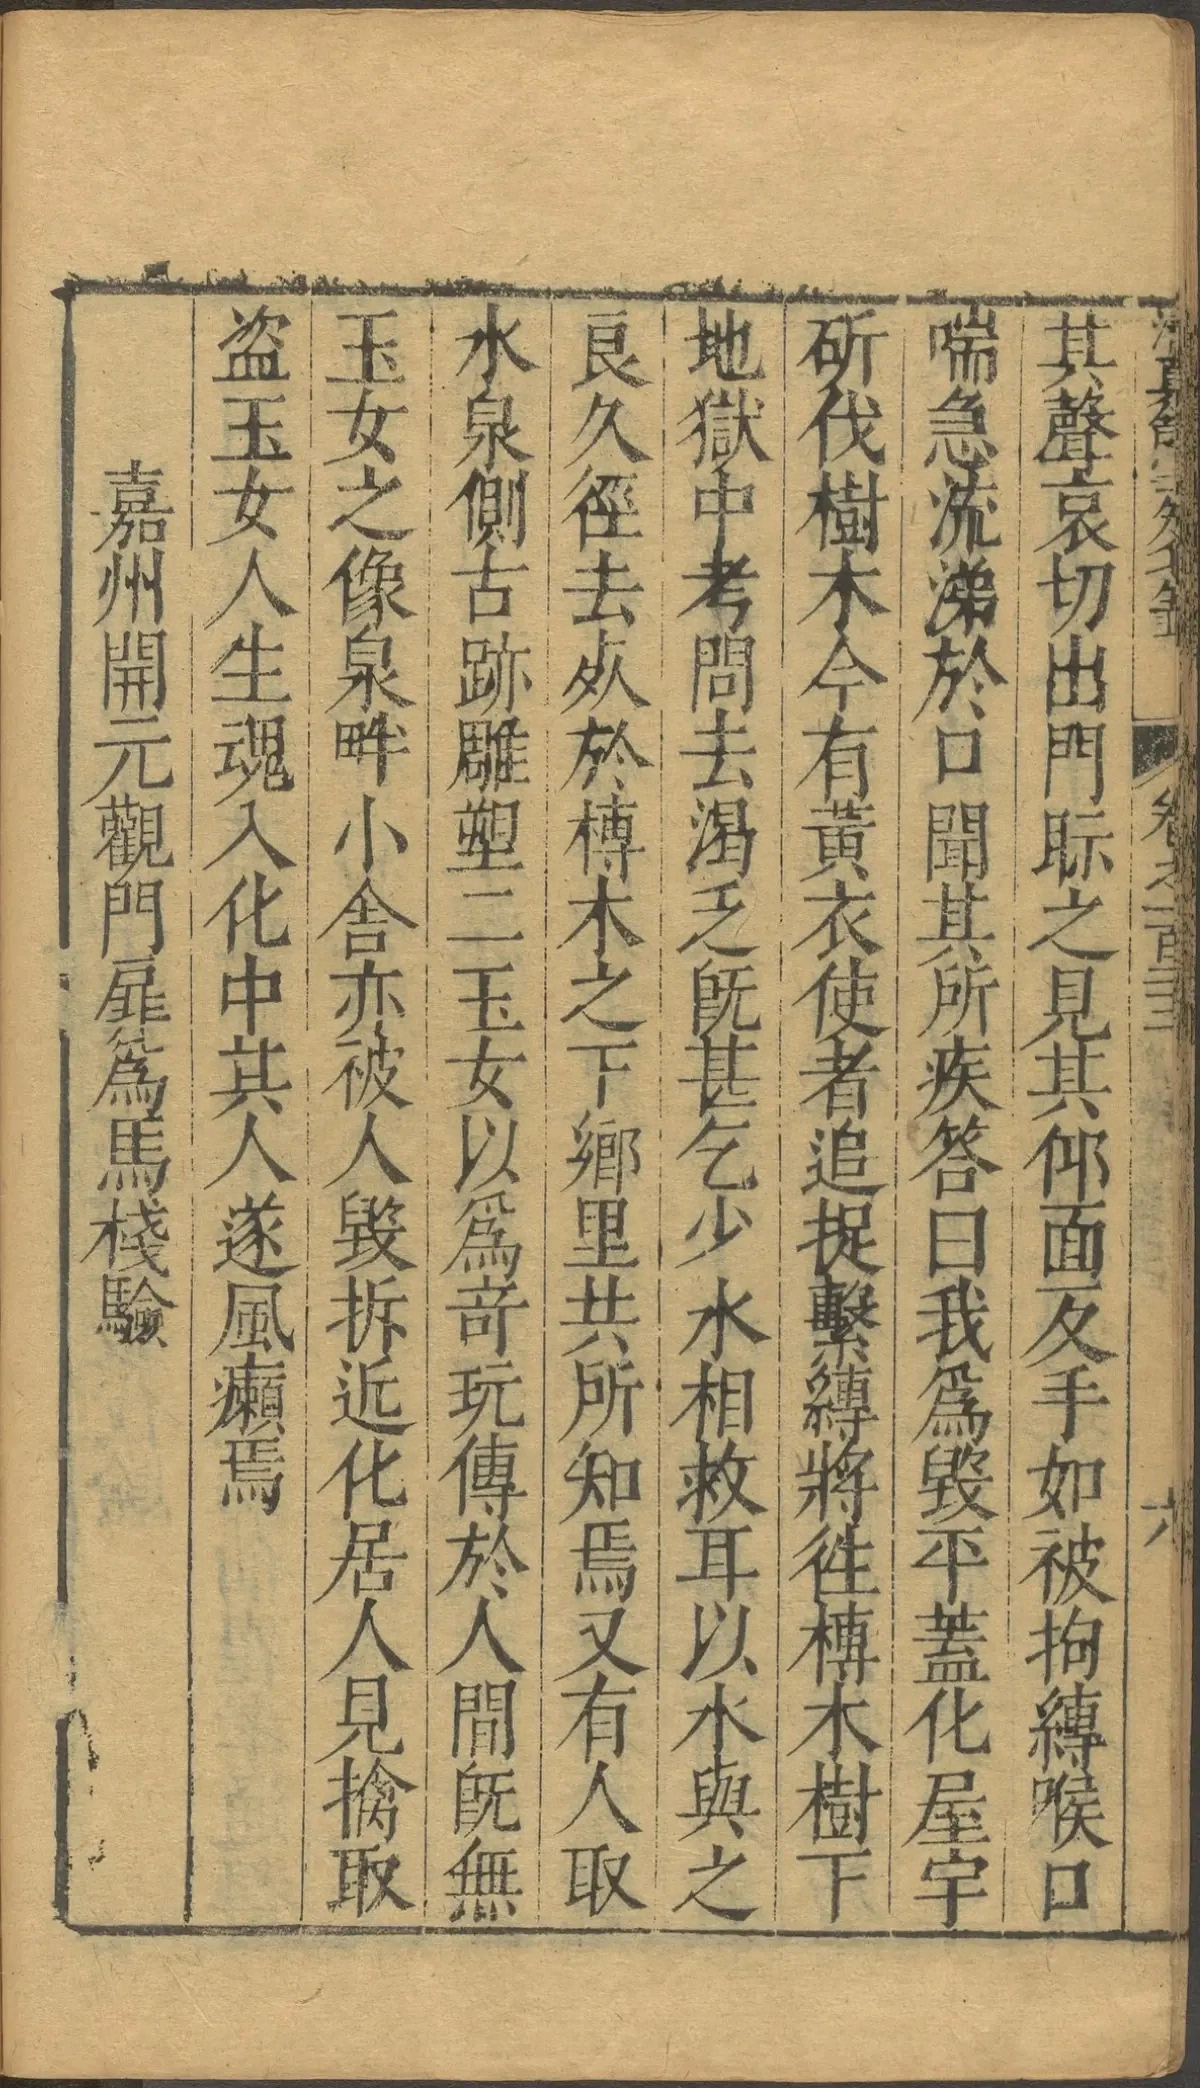 卷之一百二十二 六
其聲哀切出門眎之見其仰面反手如被拘縛喉口
喘急流涕於口聞其所疾答曰我爲毀平蓋化屋宇
斫伐樹木今有黃衣使者追捉繫縛將徃榑木樹下
地獄中考問去渴乏旣甚乞少水相救耳以水與之
良久徑去歿於榑木之下鄉里共所知焉又有人取
水泉側古跡雕塑二玉女以爲竒玩傳於人間旣無
玉女之像泉畔小舍亦被人毀拆近化居人見擒取
盜玉女人生魂入化中其人遂風癩焉
嘉州開元觀門扉爲馬棧驗